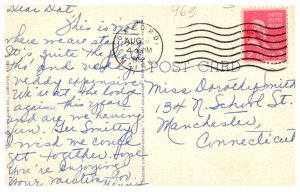 Dear Dot
963
This is
where we are stay
It's quite the
this
and very
veddy expensive.
We've let the
again this year
and are
having
fun. Gee Smitty
I wish we could
get together. hope
You're enjoying
Your vacation too
AUG
PM
POST CARD
Miss Dorothy Smith
134 N. School St.
Manchester,
Connecticut